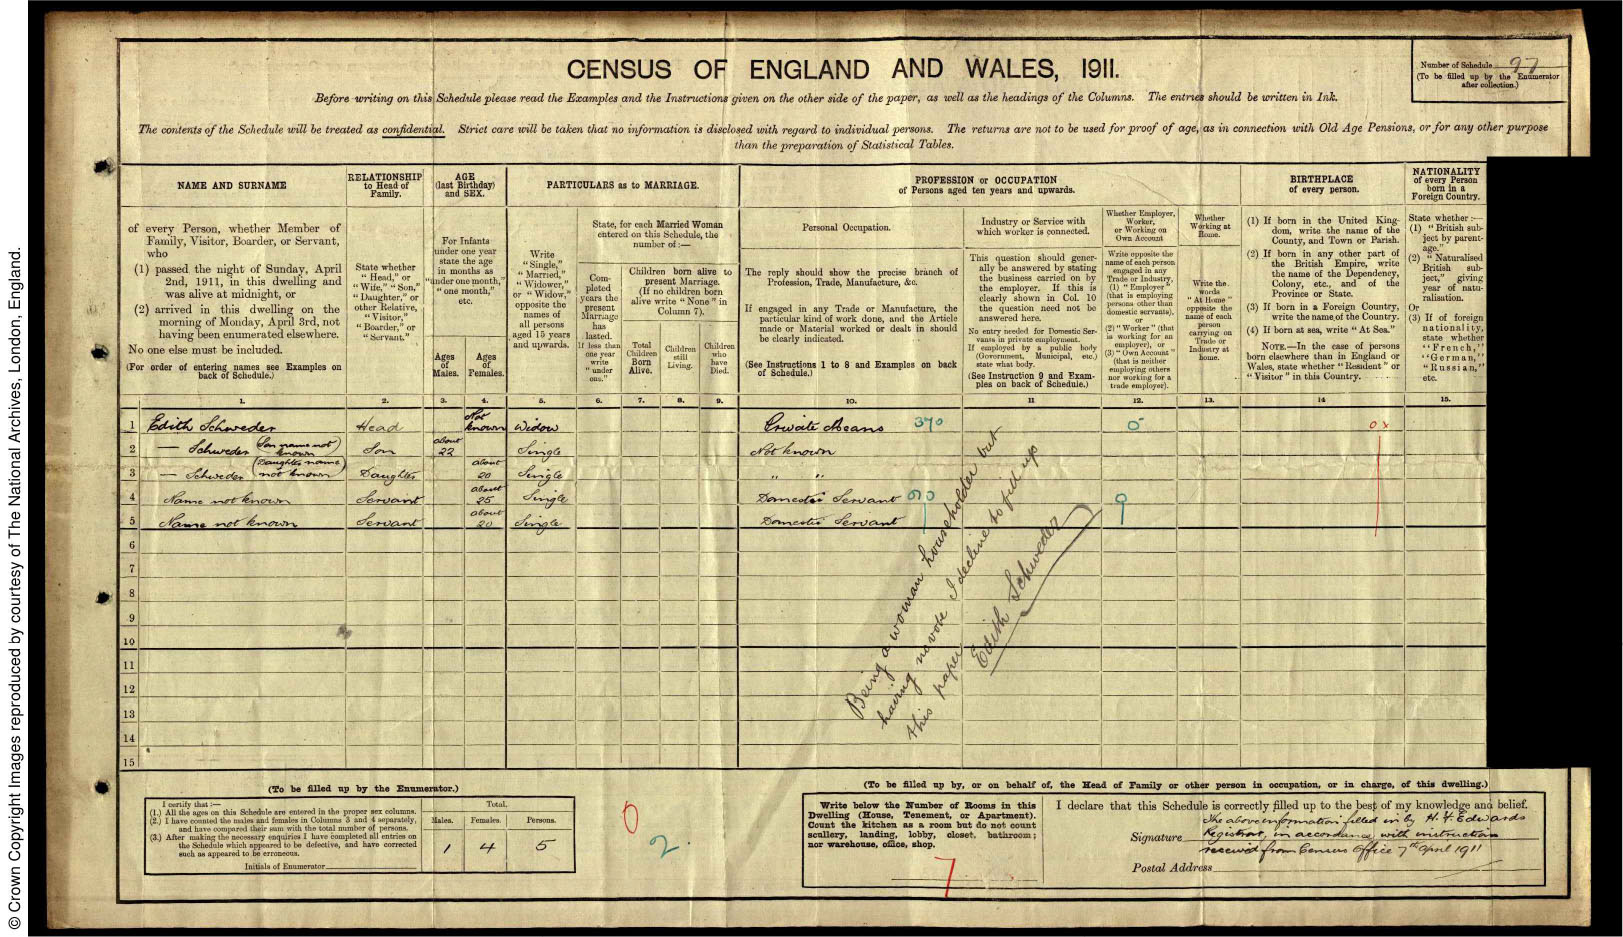 © Crown Copyright Images reproduced by courtesy of The National Archives, London, England.
CENSUS OF ENGLAND AND WALES, 1911.
Number of Schedule 97
(To be filled up by the Enumerator
after collection.)
Before writing on this Schedule please read the Examples and the Instructions given on the other side of the paper, as well as the headings of the Columns. The entries should be written in Ink.
The contents of the Schedule will be treated as confidential. Strict care will be taken that no information is disclosed with regard to individual persons. The returns are not to be used for proof of age, as in connection with Old Age Pensions, or for any other purpose
than the preparation of Statistical Tables.
NAME AND SURNAME
of every Person, whether Member of
Family, Visitor, Boarder, or Servant,
who
(1) passed the night of Sunday, April
2nd, 1911, in this dwelling and
was alive at midnight, or
(2) arrived in this dwelling on the
morning of Monday, April 3rd, not
having been enumerated elsewhere.
No one else must be included.
(For order of entering names see Examples on
back of Schedule.)
RELATIONSHIP
to Head of
Family.
State whether
"Head," or
"Wife," "Son,"
"Daughter," or
other Relative,
"Visitor,"
"Boarder," or
"Servant."
AGE
(last Birthday)
and SEX.
For Infants
under one year
state the age
in months as
"under one month,"
"one month,"
etc.
Ages
of
Males.
Ages
of
Females.
PARTICULARS as to MARRIAGE.
Write
"Single,"
"Married,"
"Widower,"
or "Widow,"
opposite the
names of
all persons
aged 15 years
and upwards.
State, for each Married Woman
entered on this Schedule, the
number of:—
Com-
pleted
years the
present
Marriage
has
lasted.
If less than
one year
write
"under
one."
Children born alive to
present Marriage.
(If no children born
alive write "None" in
Column 7).
Total
Children
Born
Alive.
Children
still
Living.
Children
who
have
Died.
PROFESSION or OCCUPATION
of Persons aged ten years and upwards.
Personal Occupation.
The reply should show the precise branch of
Profession, Trade, Manufacture, &c.
If engaged in any Trade or Manufacture, the
particular kind of work done, and the Article
made or Material worked or dealt in should
be clearly indicated.
(See Instructions 1 to 8 and Examples on back
of Schedule.)
Industry or Service with
which worker is connected.
This question should gener-
ally be answered by stating
the business carried on by
the employer. If this is
clearly shown in Col. 10
the question need not be
answered here.
No entry needed for Domestic Ser-
vants in private employment.
If employed by a public body
(Government, Municipal, etc.)
state what body.
(See Instruction 9 and Exam-
ples on back of Schedule.)
Whether Employer,
Worker,
or Working on
Own Account
Write opposite the
name of each person
engaged in any
Trade or Industry,
(1) "Employer"
(that is employing
persons other than
domestic servants),
or
(2) "Worker" (that
is working for an
employer), or
(3) "Own Account"
(that is neither
employing others
nor working for a
trade employer).
Whether
Working at
Home.
Write the
words
"At Home"
opposite the
name of each
person
carrying on
Trade or
Industry at
home.
BIRTHPLACE
of every person.
(1) If born in the United King-
dom, write the name of the
County, and Town or Parish.
(2) If born in any other part of
the British Empire, write
the name of the Dependency,
Colony, etc., and of the
Province or State.
(3) If born in a Foreign Country,
write the name of the Country.
(4) If born at sea, write "At Sea."
NOTE.—In the case of persons
born elsewhere than in England or
Wales, state whether "Resident" or
"Visitor" in this Country.
NATIONALITY
of every Person
born in a
Foreign Country.
State whether:—
(1) "British sub-
ject by parent-
age."
(2) "Naturalised
British sub-
ject," giving
year of natu-
ralisation.
Or
(3) If of foreign
nationality,
state whether
"French,"
"German,"
"Russian,"
etc.
1. 2. 3. 4. 5. 6. 7. 8. 9. 10. 11 12. 13. 14 15.
1 Edith Schweder Head Not known Widow Private Means 370 0 0x
2 — Schweder (Son name not known) Son about 22 Single Not known
3 — Schweder (Daughter name not known) Daughter about 20 Single " "
4 Name not known Servant about 25 Single Domestic Servant 9
5 Name not known Servant about 20 Single Domestic Servant
6
7
8
9
10
11
12
13
14
15
Being a woman householder but
having no vote I decline to fill up
this paper
Edith Schweder
(To be filled up by the Enumerator.)
I certify that:—
(1.) All the ages on this Schedule are entered in the proper sex columns.
(2.) I have counted the males and females in Columns 3 and 4 separately,
and have compared their sum with the total number of persons.
(3.) After making the necessary enquiries I have completed all entries on
the Schedule which appeared to be defective, and have corrected
such as appeared to be erroneous.
Initials of Enumerator
Total.
Males. Females. Persons.
1 4 5
0
2.
(To be filled up by, or on behalf of, the Head of Family or other person in occupation, or in charge, of this dwelling.)
Write below the Number of Rooms in this
Dwelling (House, Tenement, or Apartment).
Count the kitchen as a room but do not count
scullery, landing, lobby, closet, bathroom;
nor warehouse, office, shop.
7
I declare that this Schedule is correctly filled up to the best of my knowledge and belief.
The above information filled in by H. F. Edwards
Signature Registrar, in accordance with instruction
received from Census Office 7th April 1911
Postal Address